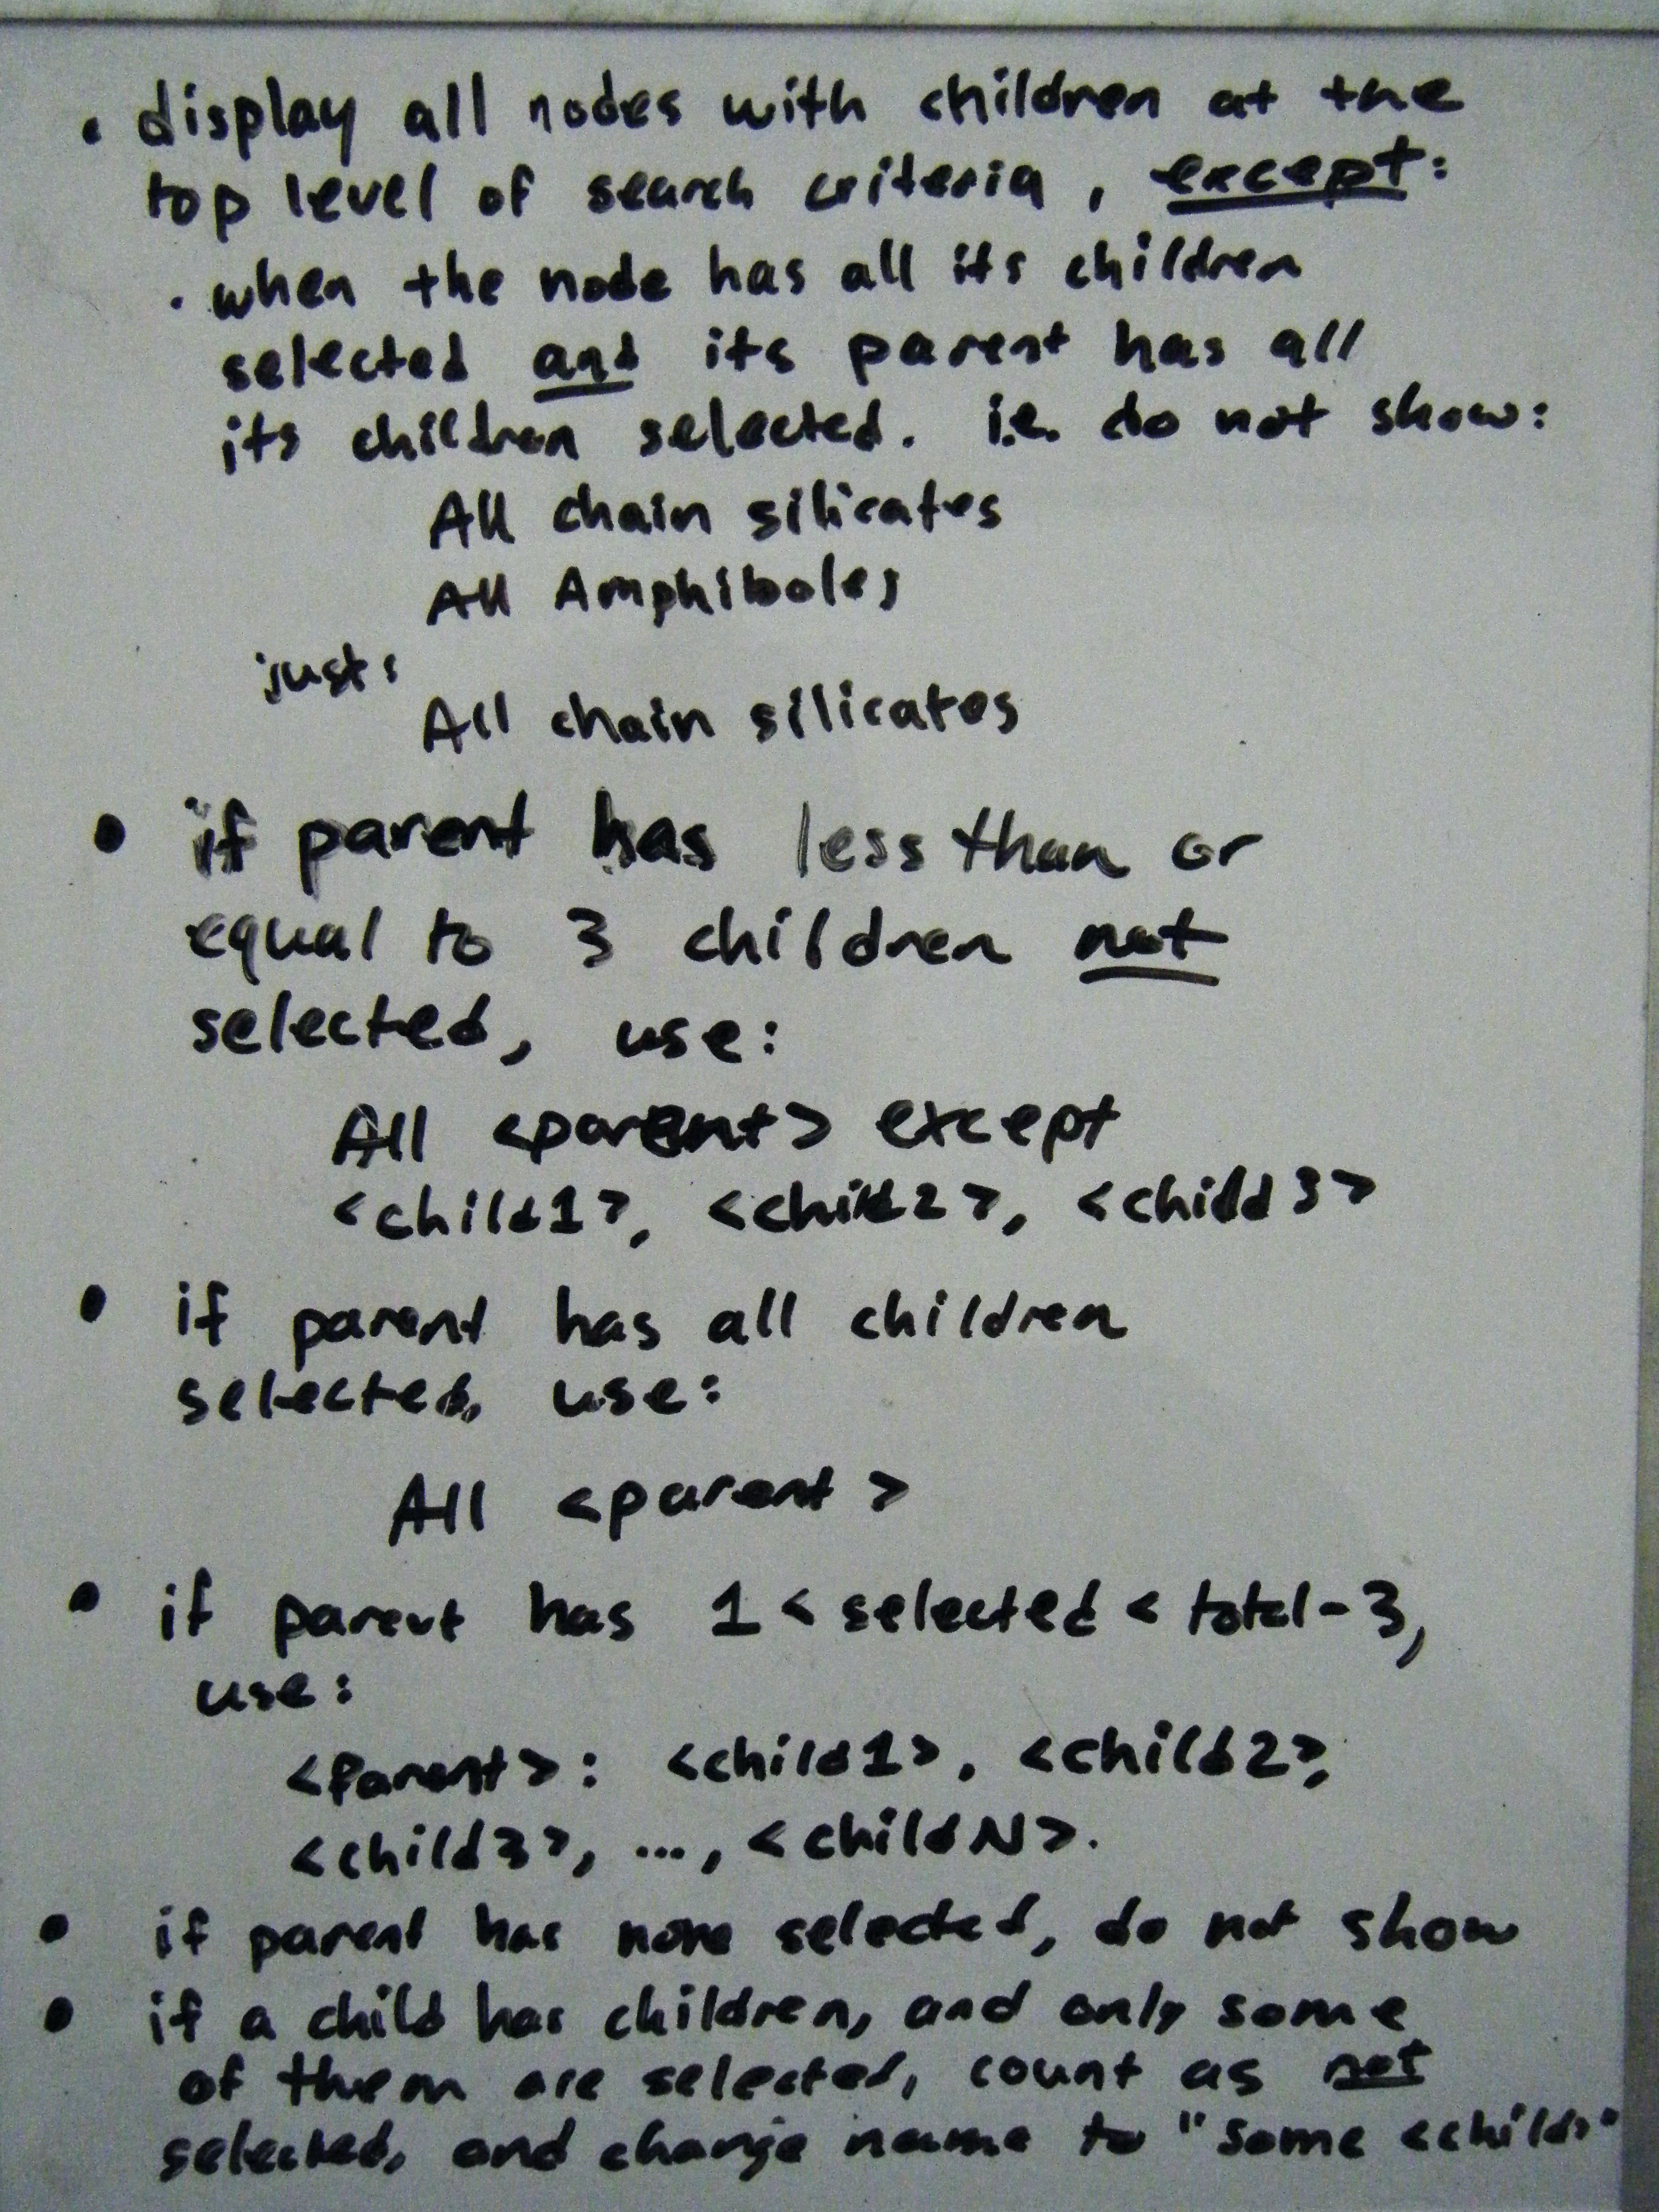 • display all nodes with children at the
top level of search criteria, except:
• when the node has all its children
selected and its parent has all
its children selected. i.e. do not show:
All chain silicates
All Amphiboles
just:
All chain silicates
• if parent has less than or
equal to 3 children not
selected, use:
All <parent> except
<child1>, <child2>, <child3>
• if parent has all children
selected, use:
All <parent>
• if parent has 1 < selected < total-3,
use:
<Parent>: <child1>, <child2>,
<child3>, ..., <childN>.
• if parent has none selected, do not show
• if a child has children, and only some
of them are selected, count as not
selected, and change name to "some <child>"